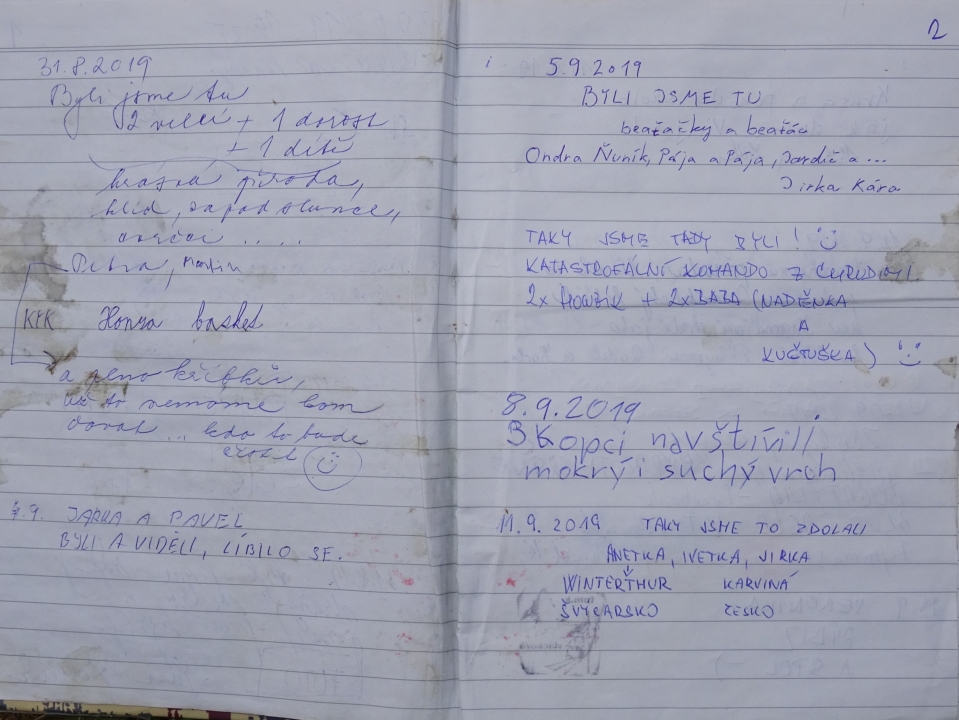 31.8.2019
Byli jsme tu
2 velcí + 1 dorost
+ 1 dítě
krásná příroda,
klid, západ slunce,
.....
Petra, Martin
KČK Honza basket
a plno
už to nemáme kam
dávat ... kdo to bude
číst
4.9. JARKA A PAVEL
BYLI A VIDĚLI, LÍBILO SE.
2
5.9.2019
BYLI JSME TU
beaťačky a beaťáci
Ondra Ňuník, Pája a Pája, Jardič a ...
Jirka Kára
TAKY JSME TADY BYLI!
KATASTROFÁLNÍ KOMANDO Z CHRUDIMI
2x + 2xBABA (NADĚNKA
A
KUČTUŠKA)
8.9.2019
3 Kopci navštívili
mokrý i suchý vrch
11.9.2019 TAKY JSME TO ZDOLALI
ANETKA, IVETKA, JIRKA
WINTERTHUR KARVINÁ
ŠVÝCARSKO ČESKO